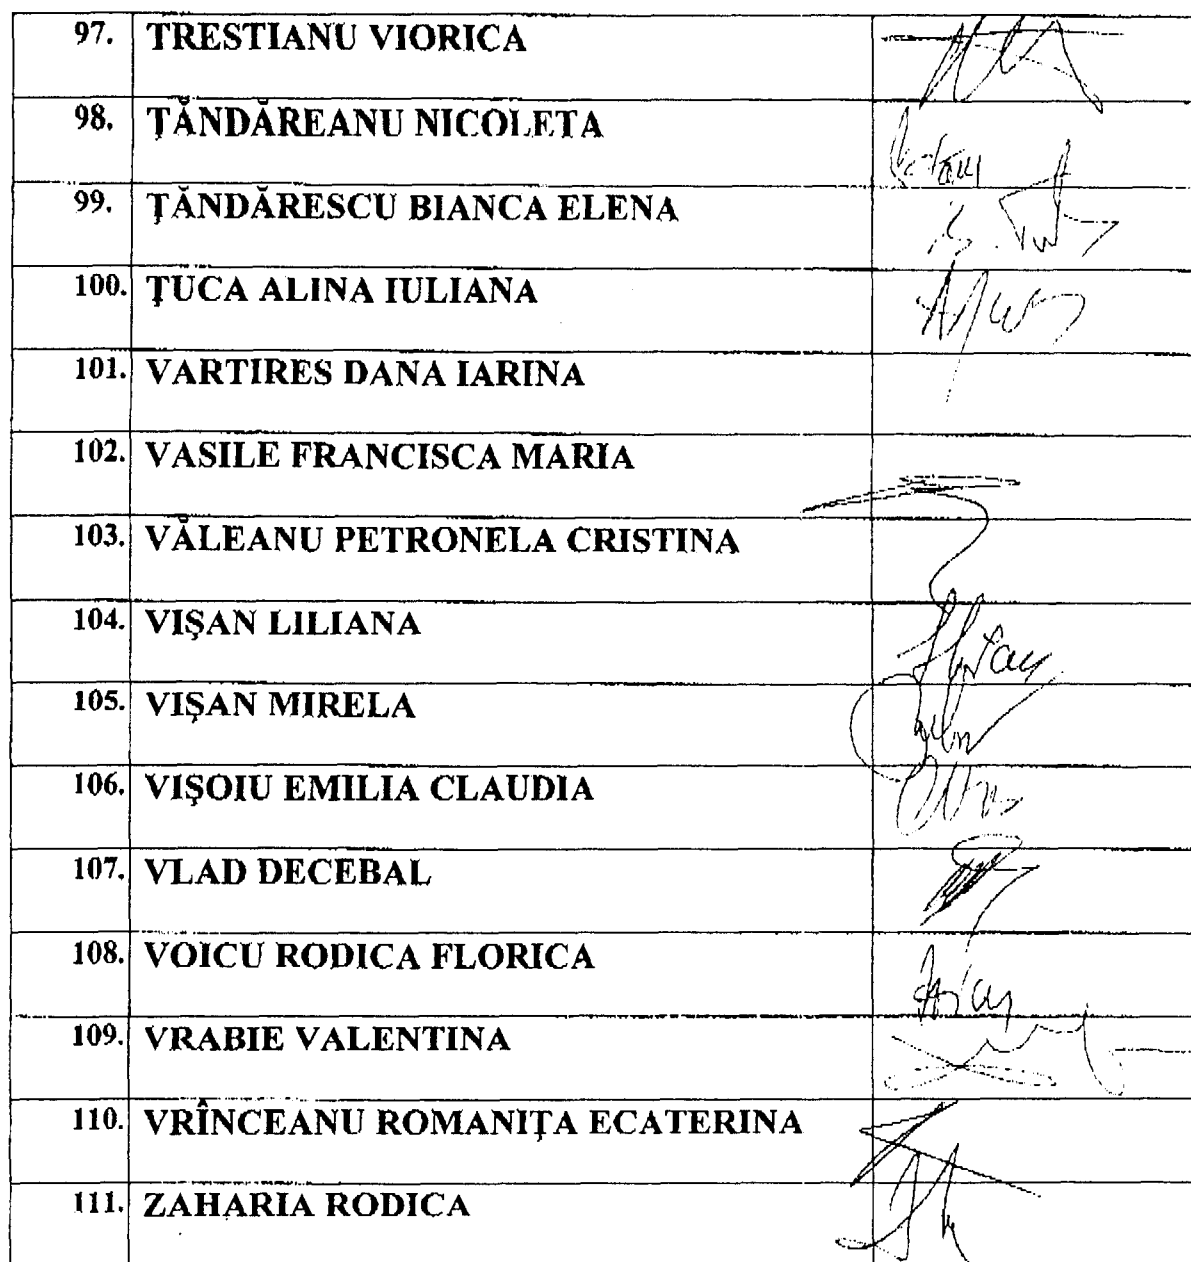 97. TRESTIANU VIORICA
98. ŢĂNDĂREANU NICOLETA
99. ŢĂNDĂRESCU BIANCA ELENA
100. ŢUCA ALINA IULIANA
101. VARTIRES DANA IARINA
102. VASILE FRANCISCA MARIA
103. VĂLEANU PETRONELA CRISTINA
104. VIŞAN LILIANA
105. VIŞAN MIRELA
106. VIŞOIU EMILIA CLAUDIA
107. VLAD DECEBAL
108. VOICU RODICA FLORICA
109. VRABIE VALENTINA
110. VRÎNCEANU ROMANIŢA ECATERINA
111. ZAHARIA RODICA